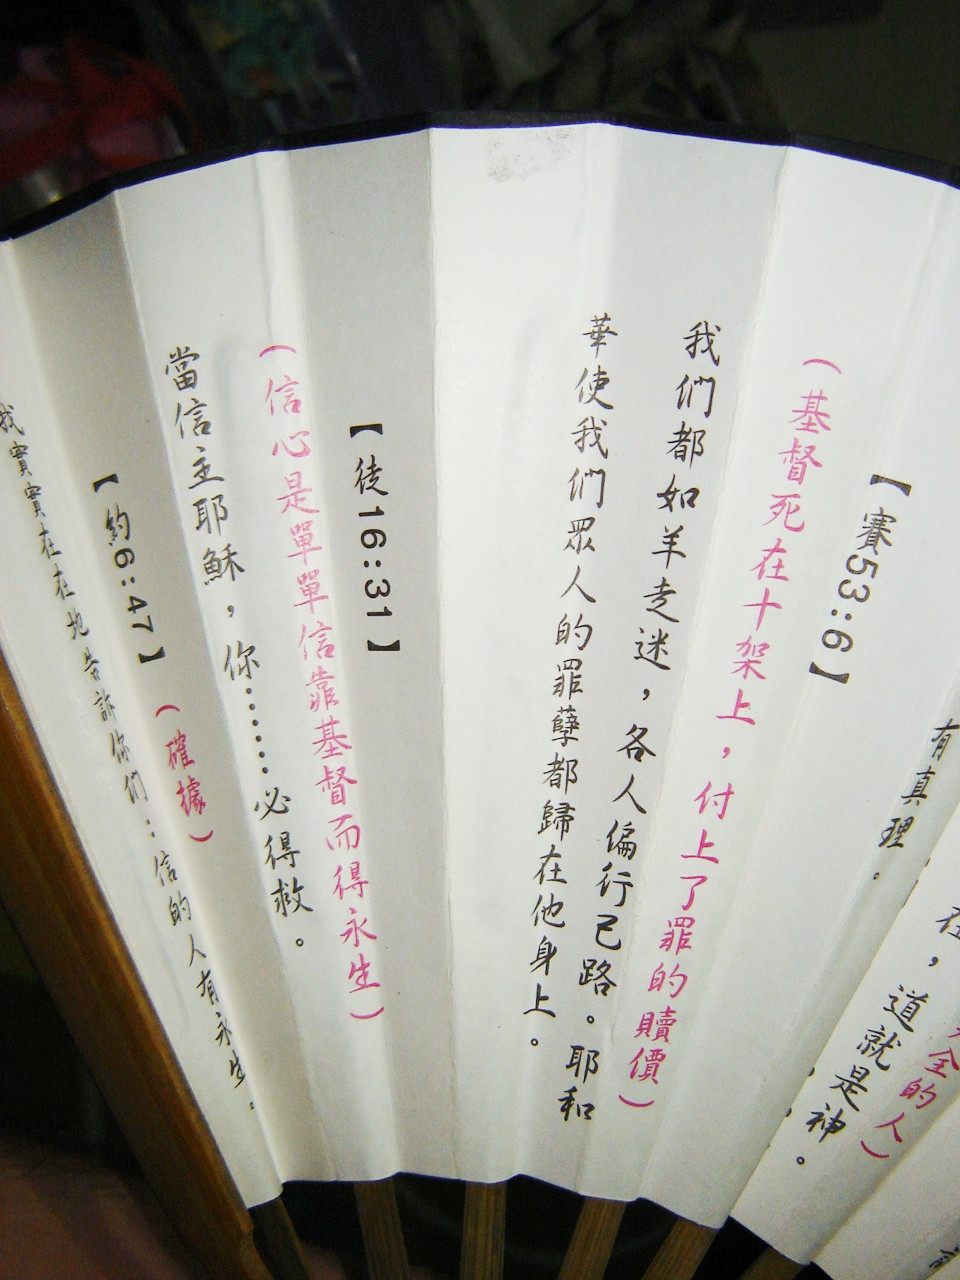 有真理.
在，道就是神。
全的人）
【賽53:6】
（基督死在十架上，付上了罪的贖價）
我們都如羊走迷，各人偏行己路。耶和
華使我們眾人的罪孽都歸在他身上。
【徒16:31】
（信心是單單信靠基督而得永生）
當信主耶穌，你……必得救。
【約6:47】（確據）
我實實在在地告訴你們：信的人有永生.